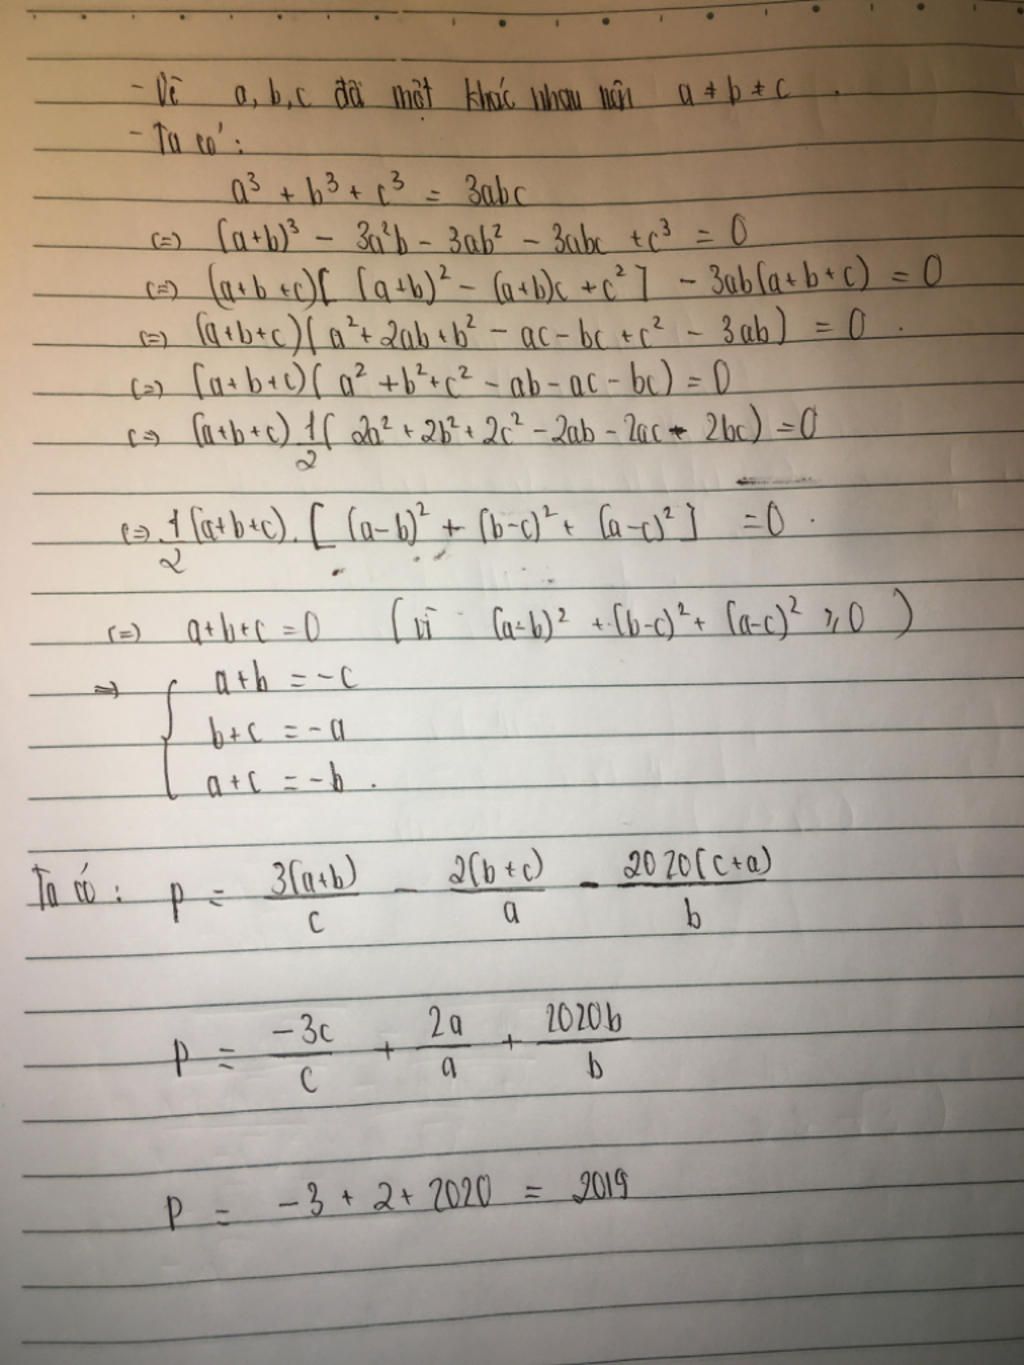 - Vì a, b, c đôi một khác nhau nên a ≠ b ≠ c .
- Ta có :
a³ + b³ + c³ = 3abc
(=) (a+b)³ - 3a²b - 3ab² - 3abc + c³ = 0
(=) (a+b+c)[ (a+b)² - (a+b)c + c² ] - 3ab(a+b+c) = 0
(=) (a+b+c)( a² + 2ab + b² - ac - bc + c² - 3ab) = 0 .
(=) (a+b+c)( a² + b² + c² - ab - ac - bc) = 0
(=) (a+b+c) 1/2 ( 2a² + 2b² + 2c² - 2ab - 2ac - 2bc) = 0
(=) 1/2 (a+b+c) . [ (a-b)² + (b-c)² + (a-c)² ] = 0 .
(=) a+b+c = 0 ( vì (a-b)² + (b-c)² + (a-c)² ⩾ 0 )
=) { a+b = -c
b+c = -a
a+c = -b .
Ta có : P = 3(a+b)/c - 2(b+c)/a - 2020(c+a)/b
P = -3c/c + 2a/a + 2020b/b
P = -3 + 2 + 2020 = 2019